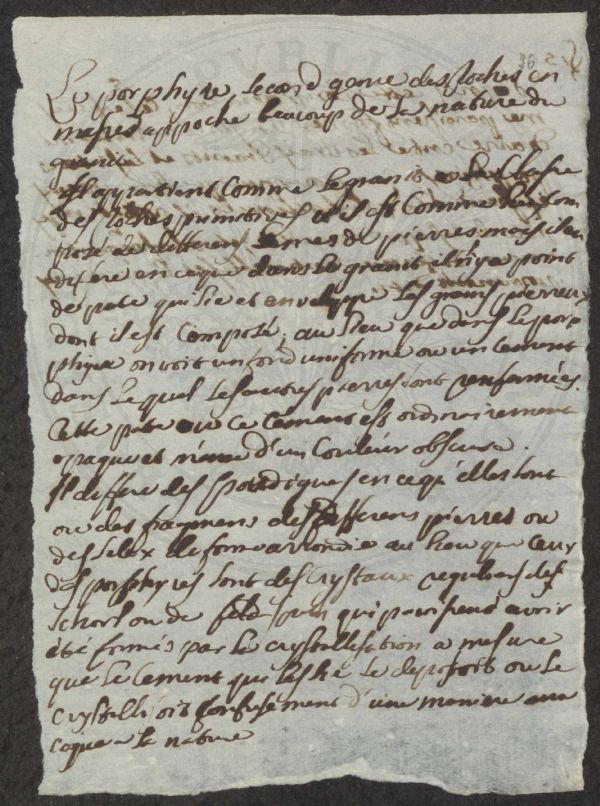 Le porphyre second genre des Roches en
masses approche beaucoup de la nature du
granit
Il appartient Comme le granit a la Classe
des Roches primitives il est Comme lui Com
posé de differens genres de pierres mais il en
differe en ce que dans le granit il n'y a point
de pate qui lie et enveloppe les grains pierreux
dont il est Composé. au lieu que dans le por
phyre on voit un fond uniforme ou un Cement
dans le quel les autres pierres sont renfermées.
Cette pate ou ce Cement est ordinairement
opaque et même d'un Couleur obscure.
Il differe des en ce qu'elles sont
ou des fragmens des differens pierres ou
des silex de forme arrondie au lieu que Ceux
des porphyres sont des Crystaux reguliers de
schorl ou de feld spath qui paroissent avoir
été formés par la Crystallisation a mesure
que le Cement qui les lie se deposoit ou se
Crystallisoit Confusement d'une maniere
a la nature